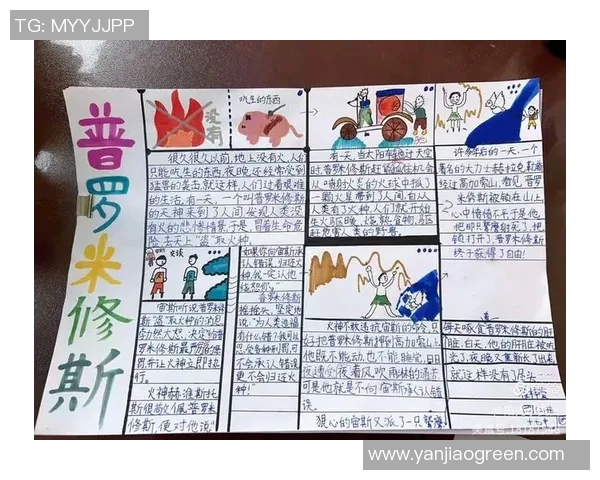 TG: MYYJJPP
普罗米修斯
没有
吃生的东西
很久很久以前,地上没有火,人们
只能吃生的东西,夜晚还经常受到
猛兽的袭击,就这样,人们过着艰难
的生活。有一天,一个叫普罗米修斯
的天神来到了人间,发现人类没
有火的悲惨情景,于是,冒着生命危
险,去天上“盗”取火种。
有一天,当太阳车驰过天空
时,普罗米修斯
从
一颗火星,带到了人间。自从
人类有了火种,人们就开始
生火取暖、烧熟食物、驱
赶危害人类的野兽。
许多年后的一天,一个
著名的大力士赫拉克勒斯
经过高加索山,看见普罗
米修斯被锁在山上,
心中愤愤不平,于是他
他
锁打开了,普罗米修斯
终于获得了自由!
交谈
宙斯听说普罗米修
斯“盗”取火种的消息,
勃然大怒,决定给
普罗米修斯最严厉的惩
罚,并让火神立即执
行。
火神赫淮斯托
斯很敬佩普罗米
修斯,便对他说“
如果你向宙斯承
认错误,归还火
种,我一定认他
饶恕你。”
普罗米修斯
摇摇头,坚定地
说“为人类造福
有什么错?我可以忍
受各种刑罚,可不
会承认错误,
更不会归还火
种!”
火神不敢违抗宙斯的命令,只
好把普罗米修斯押到高加索山上,
他既不能动,也不能睡觉,日日
夜夜遭受着风吹雨淋的痛苦,
可是他就是不向宙斯承认错
误。
狠心的宙斯又派了一只鹫鹰
每天啄食普罗米修斯的肝
脏,白天,他的肝脏被吃
光了,夜晚又重新长了出来,
就这样没有了尽头……
www.yanjiaogreen.com